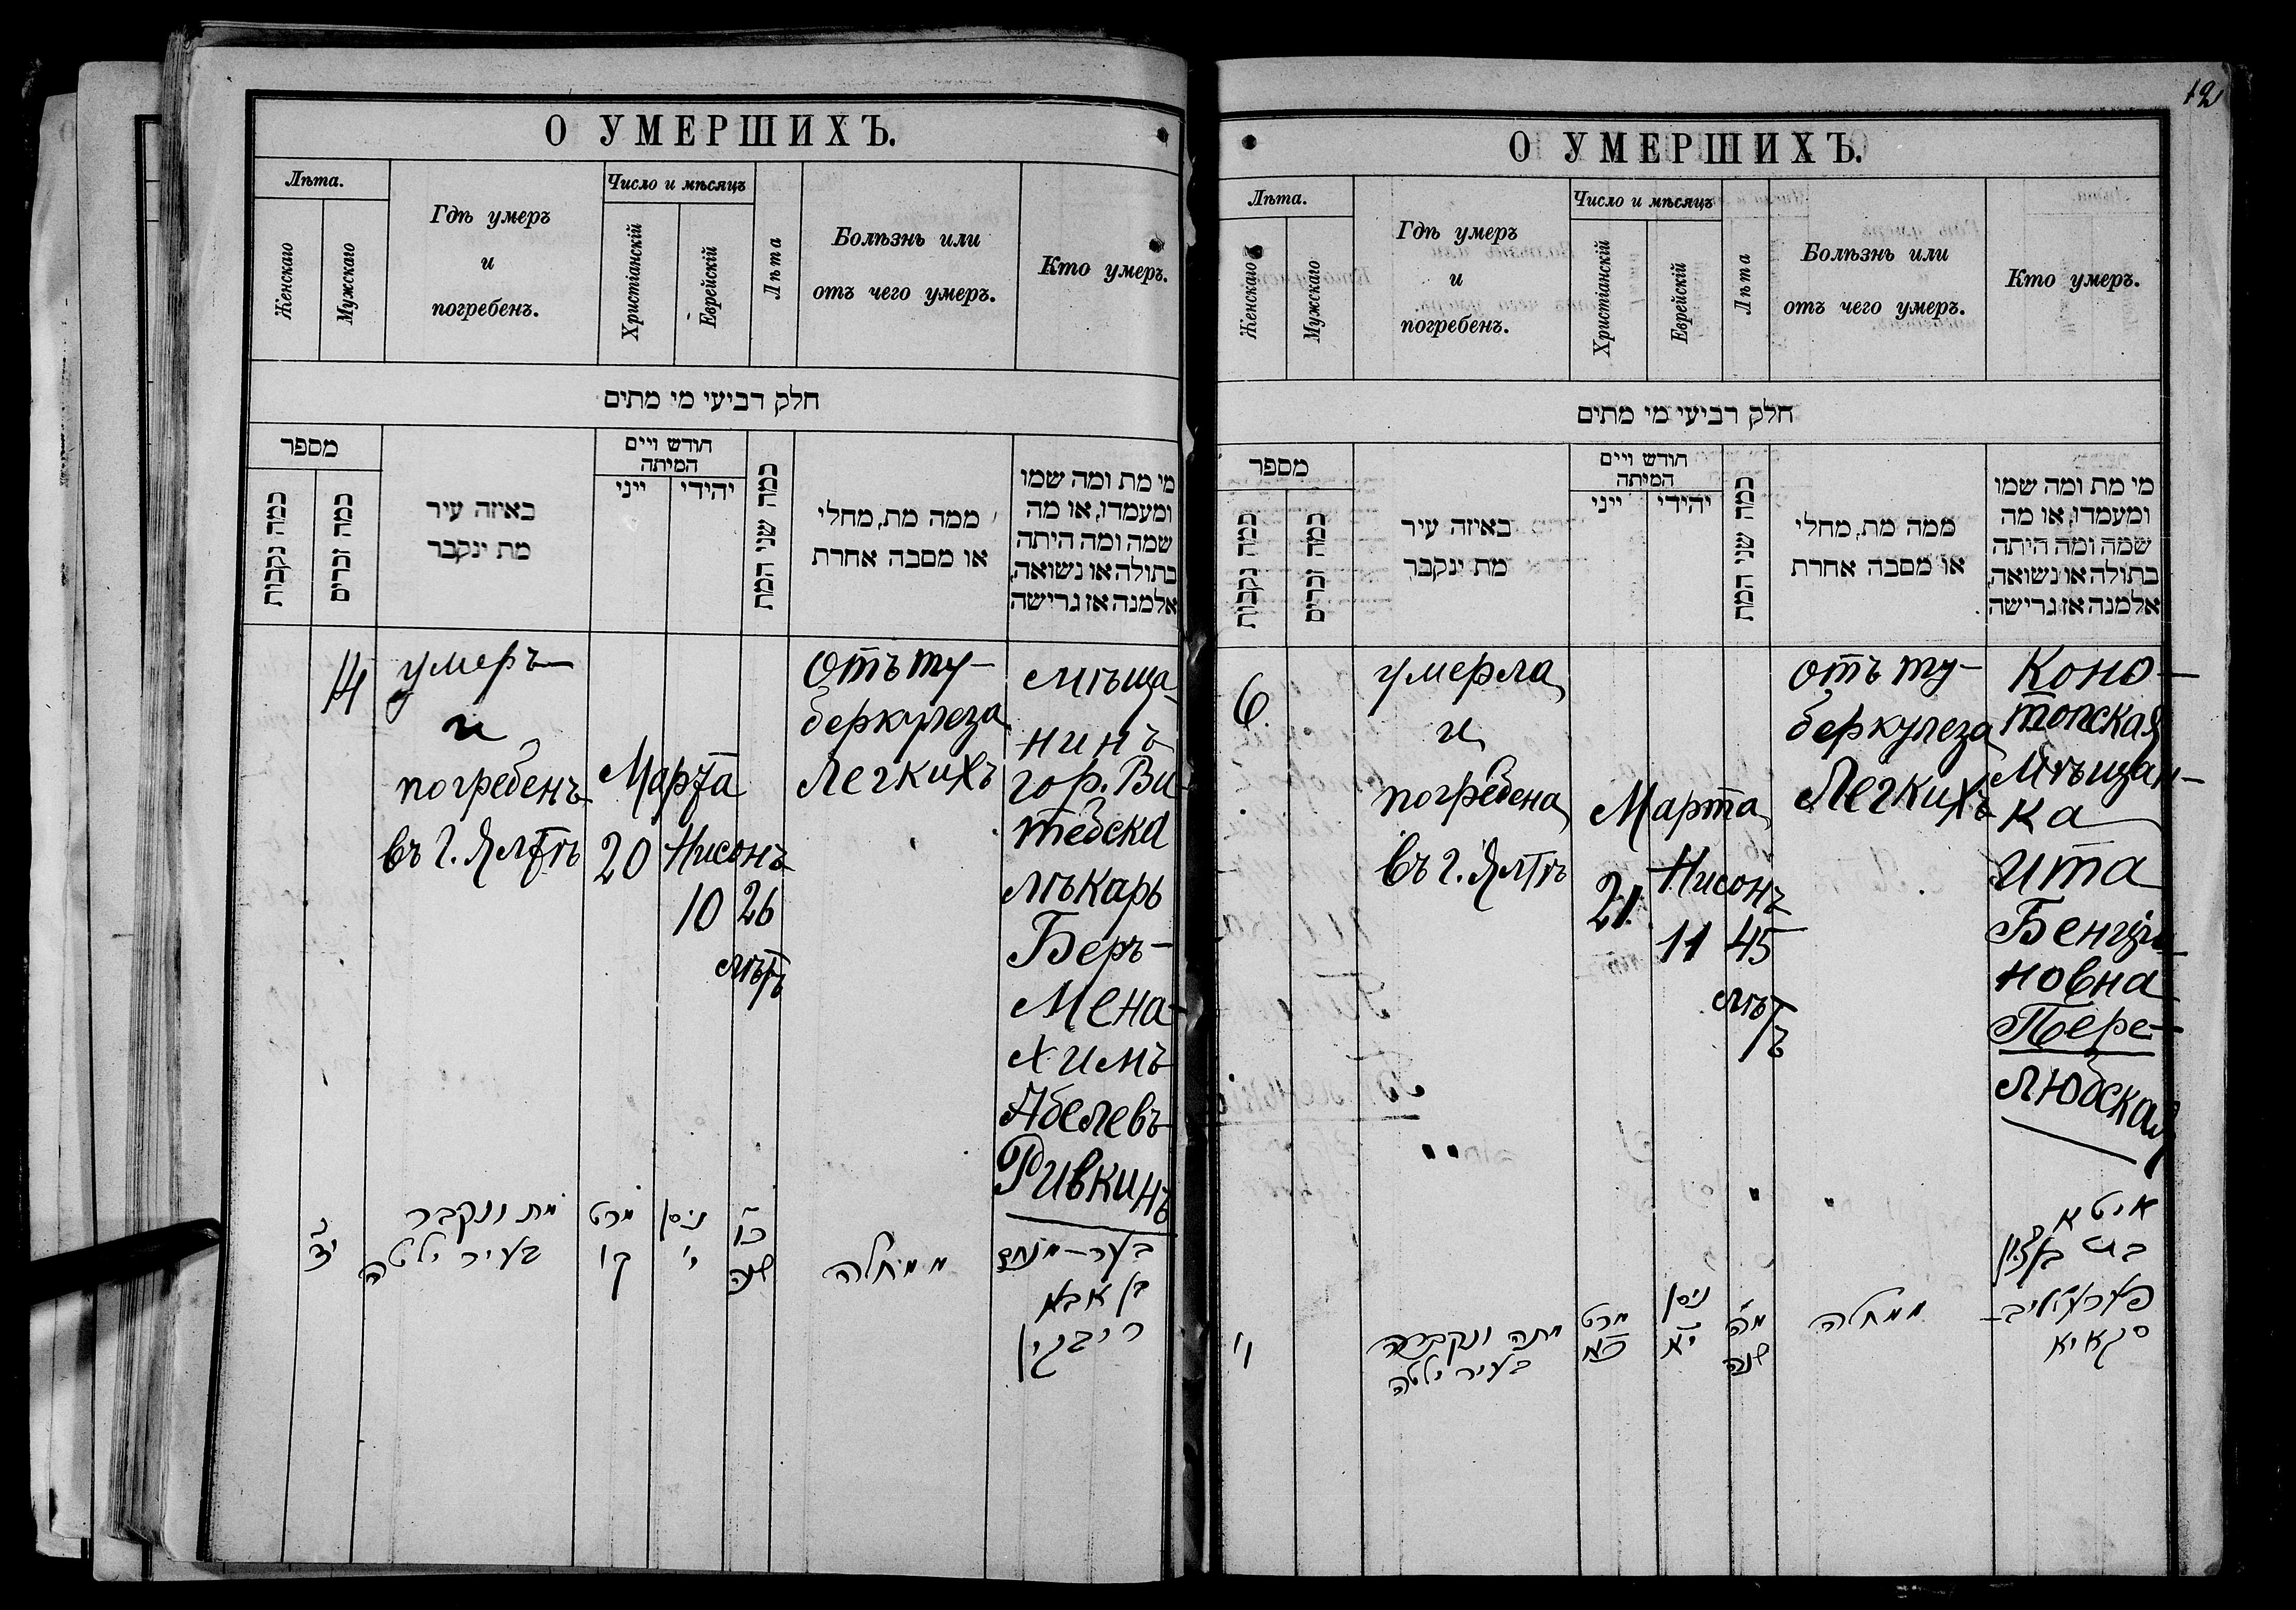 О УМЕРШИХЪ.
Лѣта.
Женскаго
Мужскаго
Гдѣ умеръ
и
погребенъ.
Число и мѣсяцъ
Христіанскій
Еврейскій
Лѣта
Болѣзнь или
отъ чего умеръ.
Кто умеръ.
חלק רביעי מי מתים
מספר
כמה נקבות
כמה זכרים
באיזה עיר
מת ינקבר
חודש ויים
המיתה
ייני
יהודי
כמה שני המת
ממה מת, מחלי
או מסבה אחרת
מי מת ומה שמו
ומעמדו, או מה
שמה ומה היתה
בתולה או נשואה,
אלמנה אז גרישה
14
умеръ
и
погребенъ
въ г. Ялтѣ
Марта
20
Нисонъ
10
26
лѣтъ
Отъ ту-
беркулеза
легкихъ
мѣща-
нинъ
гор. Ви-
тебска
лѣкарь
Беръ-
Мена-
химъ
Абелевъ
Ривкинъ
מת ונקבר
בעיר ילטה
מרט
ניסן
י
כו
שנה
ממחלה
בער-מנחם
בן אבא
ריבקין
12
О УМЕРШИХЪ.
Лѣта.
Женскаго
Мужскаго
Гдѣ умеръ
и
погребенъ.
Число и мѣсяцъ
Христіанскій
Еврейскій
Лѣта
Болѣзнь или
отъ чего умеръ.
Кто умеръ.
חלק רביעי מי מתים
מספר
כמה נקבות
כמה זכרים
באיזה עיר
מת ינקבר
חודש ויים
המיתה
ייני
יהודי
כמה שני המת
ממה מת, מחלי
או מסבה אחרת
מי מת ומה שמו
ומעמדו, או מה
שמה ומה היתה
בתולה או נשואה,
אלמנה אז גרישה
6.
умерла
и
погребена
въ г. Ялтѣ
Марта
21.
Нисонъ
11
45
лѣтъ
отъ ту-
беркулеза
Легкихъ
Коно-
топская
Мѣщан-
ка
Ита
Бенціа-
новна
Пере-
любская
ו'
מתה ונקברה
בעיר ילטה
מרט
כא
ניסן
יא
מה
שנה
ממחלה
איטא
בת בן ציון
פערעליוב-
סקאיא